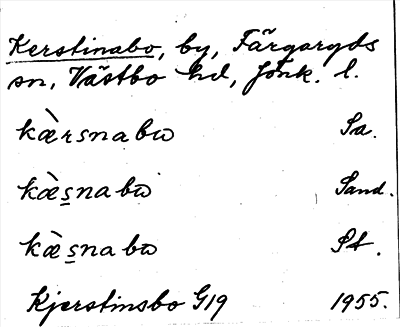 Kerstinabo, by, Färgaryds
sn, Västbo hd, Jönk. l.
kæ̀rsnabω Sa.
kæ̀s̲nabω̄ Sand.
kæ̀s̲nabω̄ St.
Kjerstinsbo G19 1955.